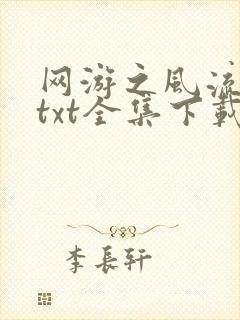 网游之风流
txt全集下载
李長轩